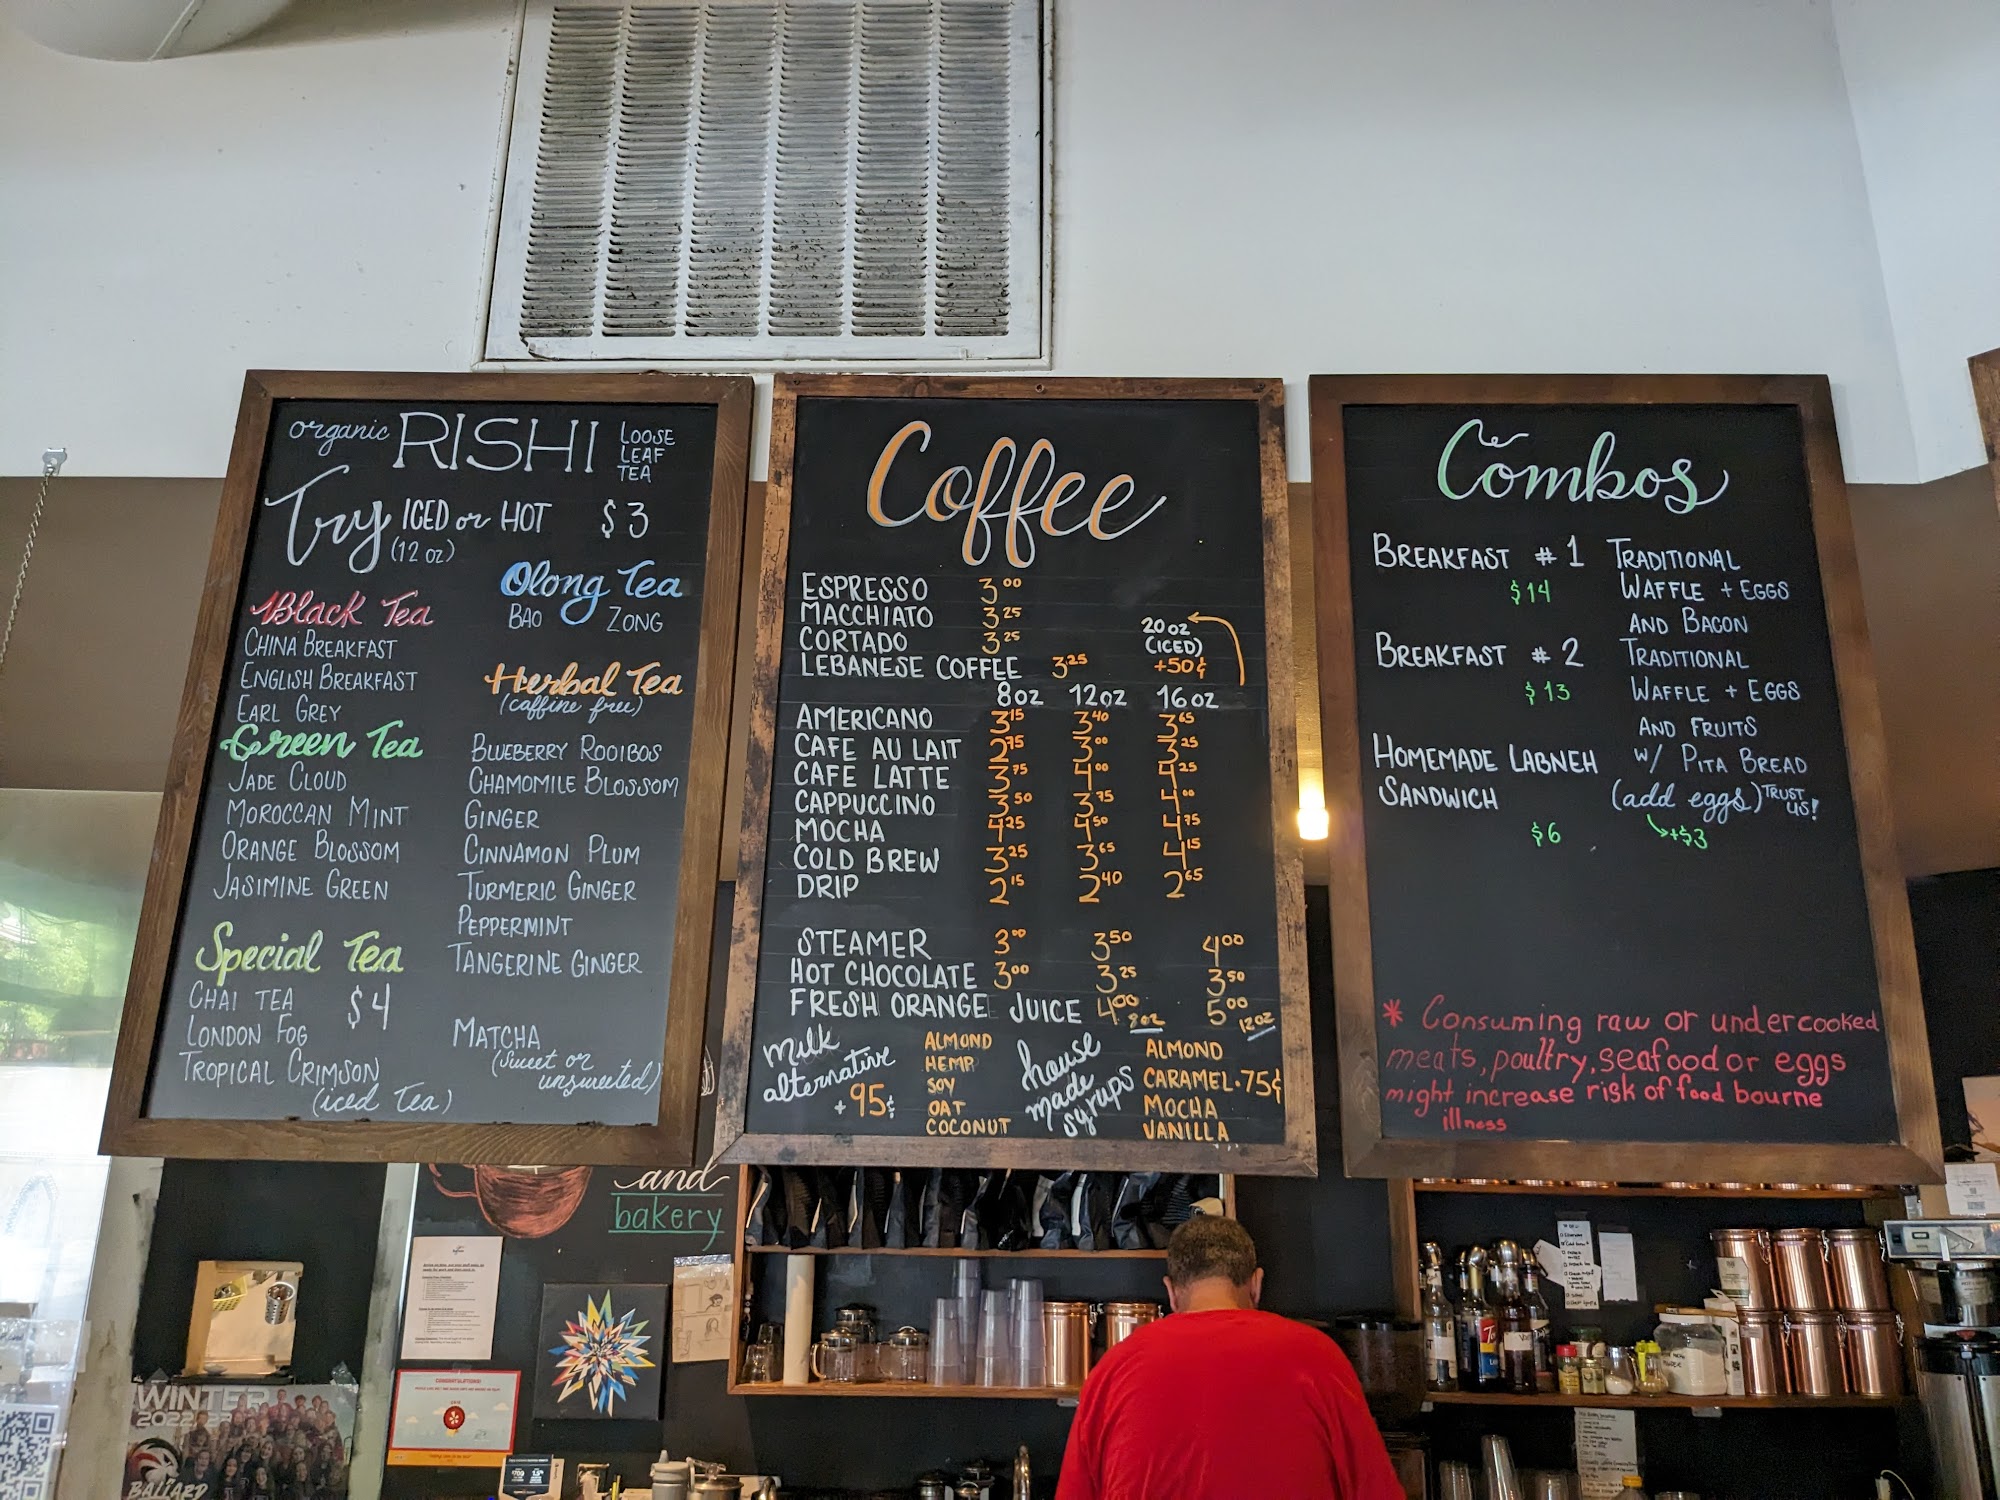 organic RISHI LOOSE
LEAF
TEA
Try ICED or HOT $3
(12 oz)
Black Tea
CHINA BREAKFAST
ENGLISH BREAKFAST
EARL GREY
Green Tea
JADE CLOUD
MOROCCAN MINT
ORANGE BLOSSOM
JASIMINE GREEN
Special Tea
CHAI TEA $4
LONDON FOG
TROPICAL CRIMSON
(iced Tea)
Olong Tea
BAO ZONG
Herbal Tea
(caffine free)
BLUEBERRY ROOIBOS
CHAMOMILE BLOSSOM
GINGER
CINNAMON PLUM
TURMERIC GINGER
PEPPERMINT
TANGERINE GINGER
MATCHA
(Sweet or
unsweeted)
Coffee
ESPRESSO 3 00
MACCHIATO 3 25
CORTADO 3 25
LEBANESE COFFEE 3.25
20 oz
(ICED)
+50¢
8 oz 12 oz 16 oz
AMERICANO 3 15 3 40 3 65
CAFE AU LAIT 2 75 3 00 3 25
CAFE LATTE 3 75 4 00 4 25
CAPPUCCINO 3 50 3 75 4 00
MOCHA 4 25 4 50 4 75
COLD BREW 3 25 3 65 4 15
DRIP 2 15 2 40 2 65
STEAMER 3 00 3 50 4 00
HOT CHOCOLATE 3 00 3 25 3 50
FRESH ORANGE JUICE 4 00 9oz 5 00 12oz
milk
alternative
+ 95¢
ALMOND
HEMP
SOY
OAT
COCONUT
house
made
syrups
ALMOND
CARAMEL .75¢
MOCHA
VANILLA
Combos
BREAKFAST # 1 TRADITIONAL
$14 WAFFLE + EGGS
AND BACON
BREAKFAST # 2 TRADITIONAL
$13 WAFFLE + EGGS
AND FRUITS
HOMEMADE LABNEH W/ PITA BREAD
SANDWICH (add eggs) TRUST
US!
$6 +$3
* Consuming raw or undercooked
meats, poultry, seafood or eggs
might increase risk of food bourne
illness
and
bakery
CONGRATULATIONS!
WINTER
2022-23
BALLARD